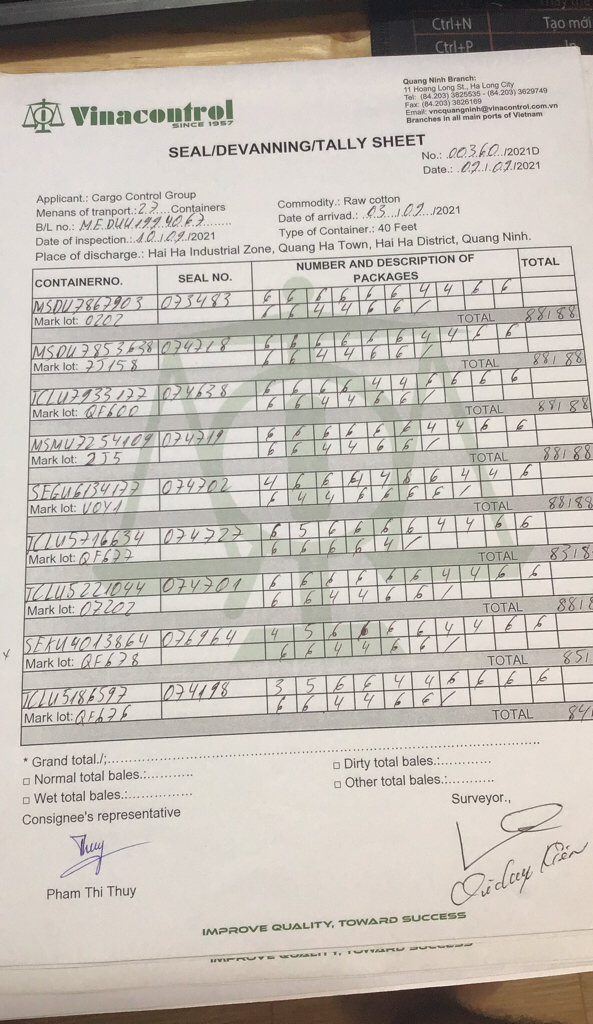 Ctrl+N Tạo mới
Ctrl+P In
Vinacontrol
SINCE 1957
Quang Ninh Branch:
11 Hoang Long St., Ha Long City
Tel: (84.203) 3825535 - (84.203) 3629749
Fax: (84.203) 3826169
Email: vncquangninh@vinacontrol.com.vn
Branches in all main ports of Vietnam
SEAL/DEVANNING/TALLY SHEET
No.: 00360/2021D
Date.: 02/09/2021
Applicant.: Cargo Control Group
Commodity.: Raw cotton
Menans of tranport.: 27 Containers
Date of arrivad.: 03/09/2021
B/L no.: MEDUU1994067
Type of Container.: 40 Feet
Date of inspection.: 10/09/2021
Place of discharge.: Hai Ha Industrial Zone, Quang Ha Town, Hai Ha District, Quang Ninh.
CONTAINERNO. SEAL NO. NUMBER AND DESCRIPTION OF PACKAGES TOTAL
MSDU7867903 073483 6 6 6 6 6 6 4 4 6 6
6 6 4 4 6 6 /
Mark lot: 0202 TOTAL 88/88
MSDU7853638 074718 6 6 6 6 6 6 4 4 6 6
6 6 4 4 6 6 /
Mark lot: 22158 TOTAL 88/88
TCLU7933177 074638 6 6 6 6 4 4 6 6 6 6
6 6 4 4 6 6 /
Mark lot: QF600 TOTAL 88/88
MSMU7254109 074719 6 6 6 6 6 6 4 4 6 6
6 6 4 4 6 6 /
Mark lot: 2J5 TOTAL 88/88
SEGU6134177 074702 4 6 6 6 4 6 6 4 4 6
6 4 4 6 6 6 6 /
Mark lot: VOY1 TOTAL 88/88
TCLU5716634 074727 6 5 6 6 6 6 4 4 6 6
6 6 6 6 4 /
Mark lot: QF677 TOTAL 83/8
TCLU5221044 074701 6 6 6 6 6 6 4 4 6 6
6 6 4 4 6 6 /
Mark lot: 07202 TOTAL 88/8
SEKU4013864 076964 4 5 6 6 6 6 4 4 6 6
6 6 4 4 6 6 /
Mark lot: QF678 TOTAL 85/
TCLU5186597 074198 3 5 6 6 4 4 6 6 6 6
6 6 4 4 6 6 /
Mark lot: QF676 TOTAL 84/
* Grand total./:
□ Normal total bales.:
□ Dirty total bales.:
□ Wet total bales.:
□ Other total bales.:
Consignee's representative
Surveyor.,
Thuy
Pham Thi Thuy
IMPROVE QUALITY, TOWARD SUCCESS
IMPROVE QUALITY, TOWARD SUCCESS